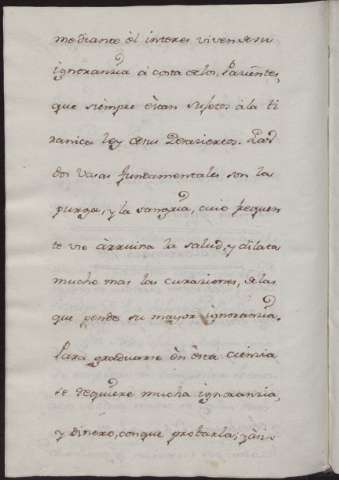 mediante el interes viven de su
ignoranzia à costa de los Pazientes,
que siempre estan sujetos à la ti
ranica ley de sus Desazieros. Las
dos vasas fundamentales son la
purga, y la sangria, cuio frequen
te vso arruina la salud, y dilata
mucho mas las curaziones, de las
que pende su mayor ignoranzia.
Para graduarse en esta ciencia
se requiere mucha ignoranzia,
y dinero, conque probarla; y à in-